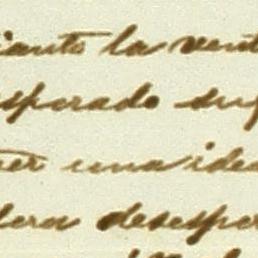 iante la vent
esperado dup
er una idea
dera desesper